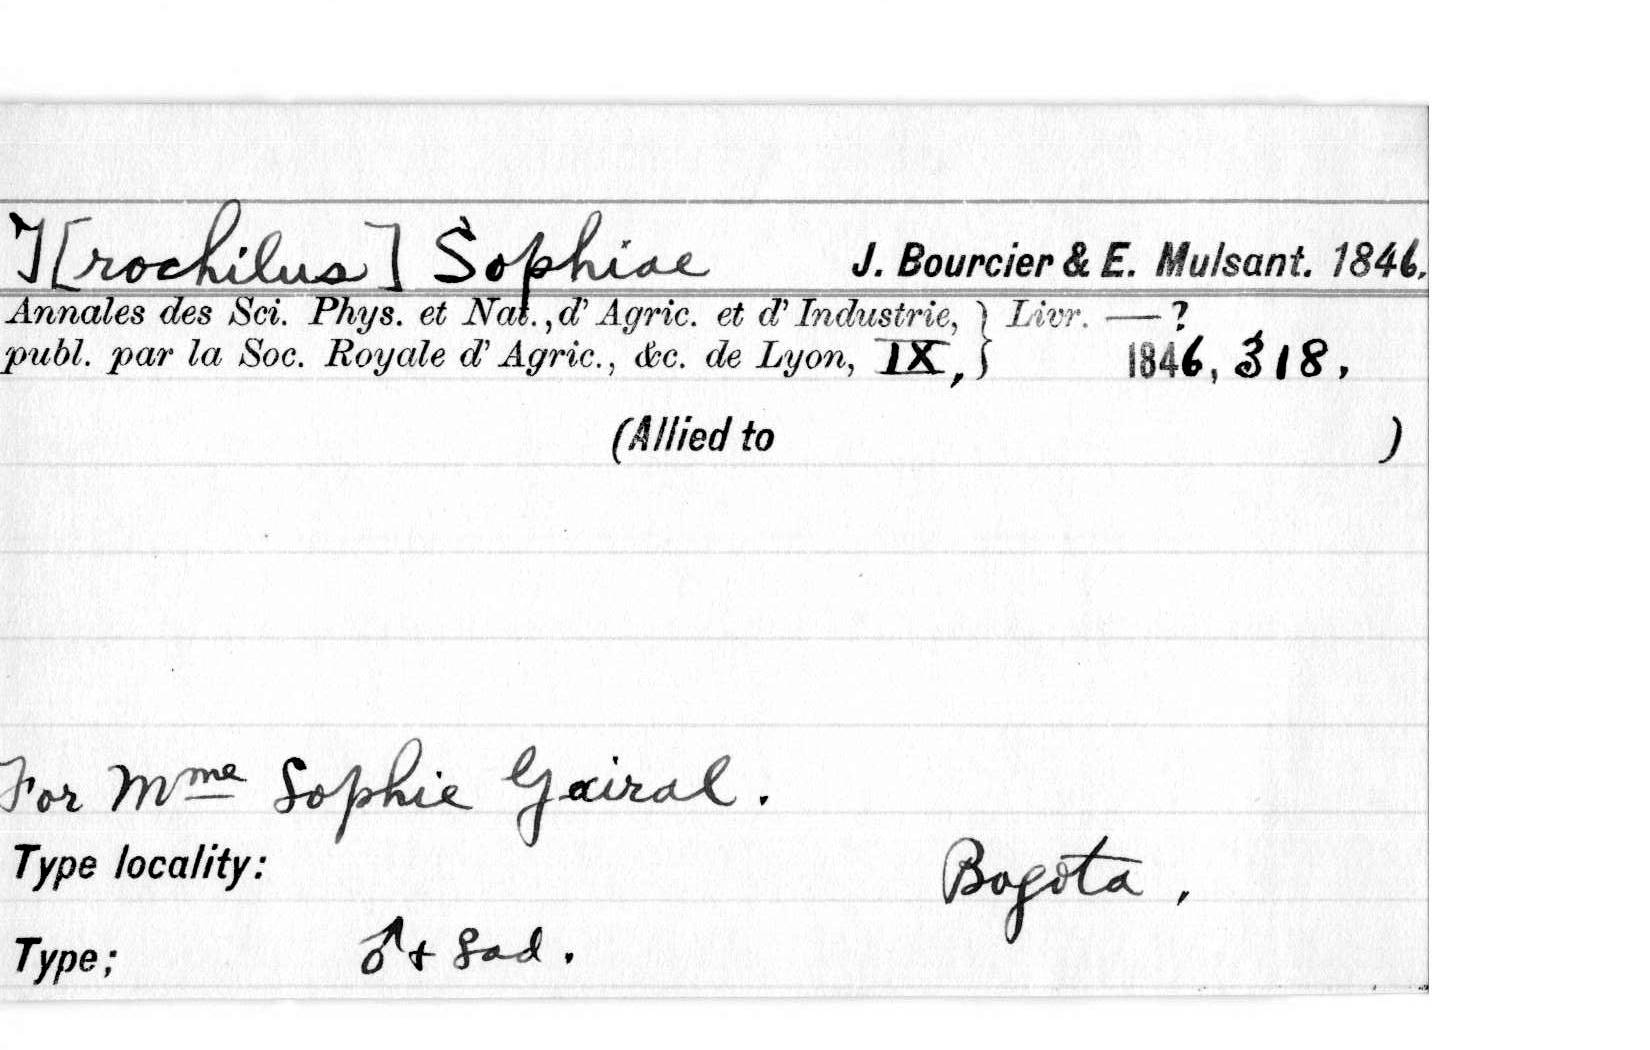 T[rochilus] Sophiae J. Bourcier & E. Mulsant. 1846.
Annales des Sci. Phys. et Nat., d' Agric. et d' Industrie, } Livr. — ?
publ. par la Soc. Royale d' Agric., &c. de Lyon, IX, } 1846, 318,
(Allied to )
For Mme Sophie Gairal.
Type locality: Bogota,
Type; ♂ + ♀ ad.